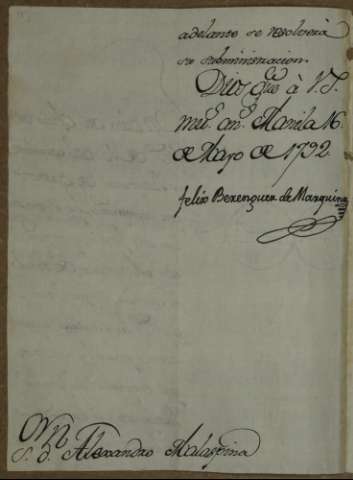 adelante se resolverá
su subministracion.
Dios gue à V.S.
ms. an.s Manila 16
de Mayo de 1792
felix Berenguer de Marquina
S.r D. Alexandro Malaspina